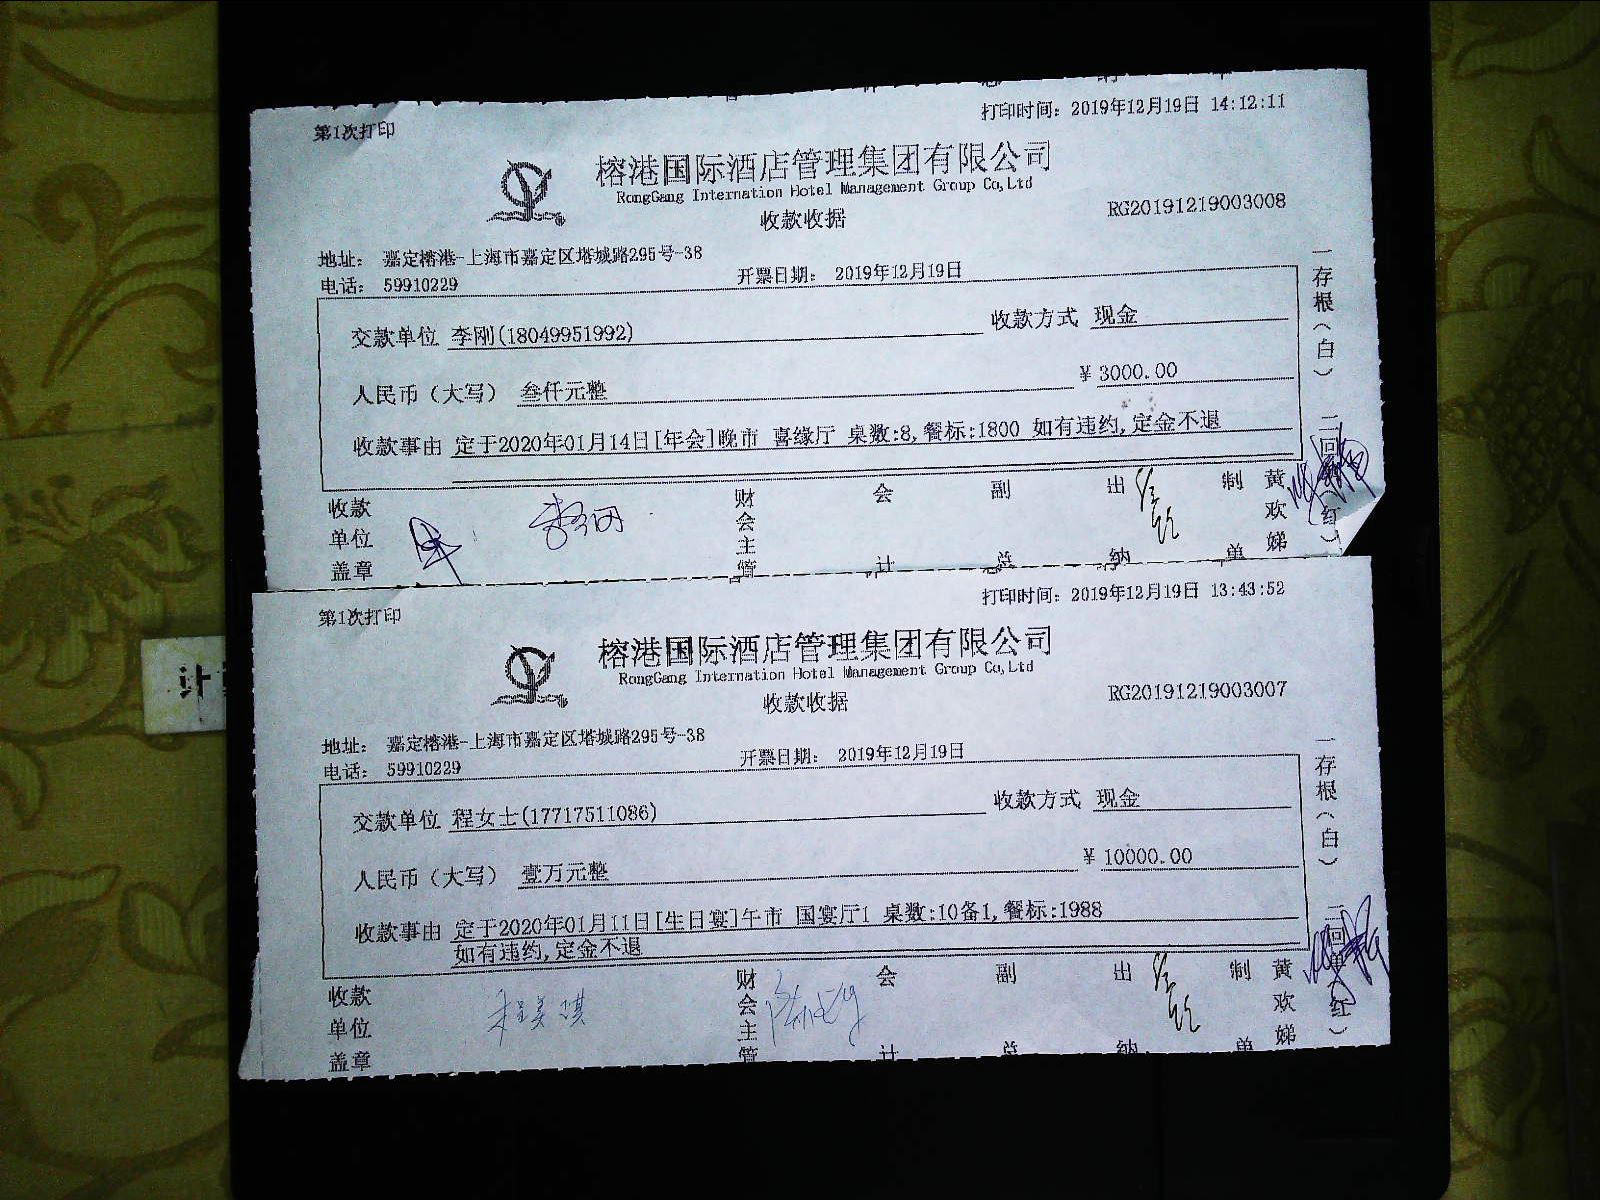 第1次打印
打印时间: 2019年12月19日 14:12:11
榕港国际酒店管理集团有限公司
RongGang Internation Hotel Management Group Co,Ltd
收款收据
RG20191219003008
地址: 嘉定榕港-上海市嘉定区塔城路295号-38
电话: 59910229
开票日期: 2019年12月19日
交款单位 李刚(18049951992)
收款方式 现金
人民币（大写） 叁仟元整
¥ 3000.00
收款事由 定于2020年01月14日[年会]晚市 喜缘厅 桌数:8,餐标:1800 如有违约,定金不退
收款单位盖章
李刚
财会主管
会计
副总
出纳
制单
黄欢娣
一存根（白）
二回单（红）
第1次打印
打印时间: 2019年12月19日 13:43:52
榕港国际酒店管理集团有限公司
RongGang Internation Hotel Management Group Co,Ltd
收款收据
RG20191219003007
地址: 嘉定榕港-上海市嘉定区塔城路295号-38
电话: 59910229
开票日期: 2019年12月19日
交款单位 程女士(17717511086)
收款方式 现金
人民币（大写） 壹万元整
¥ 10000.00
收款事由 定于2020年01月11日[生日宴]午市 国宴厅1 桌数:10备1,餐标:1988
如有违约,定金不退
收款单位盖章
程美琪
财会主管
会计
副总
出纳
制单
黄欢娣
一存根（白）
二回单（红）